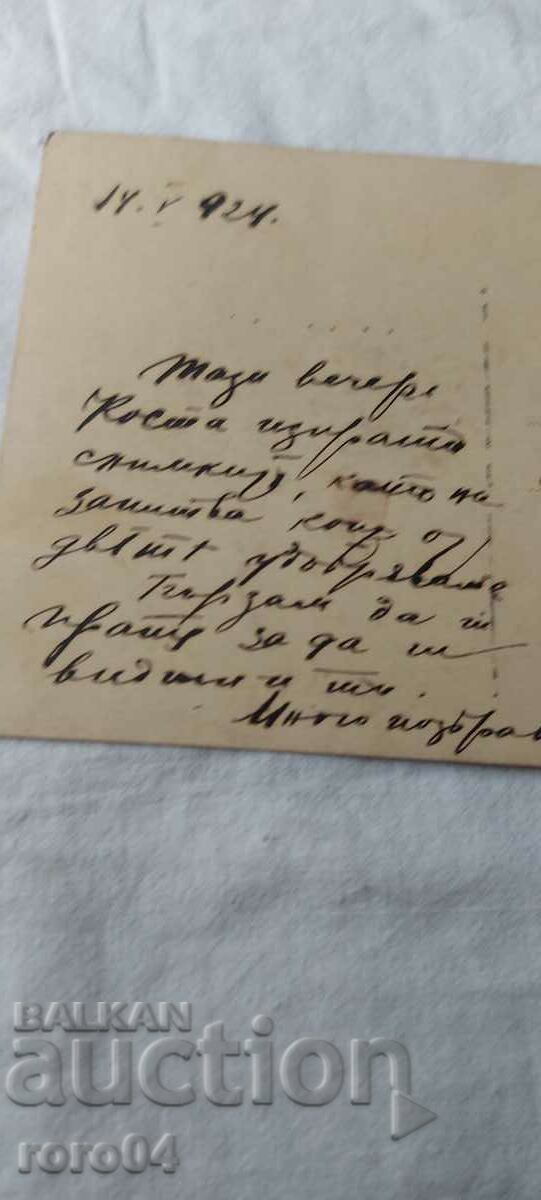 14. V 924.
Тази вечерь
Коста изпрати
снимкитѣ, като ни
запитва коя от
двѣтѣ удобрявате
Бързам да ти
пратѫ за да ги
видиш и ти.
Много поздрав
BALKAN
auction
roro04